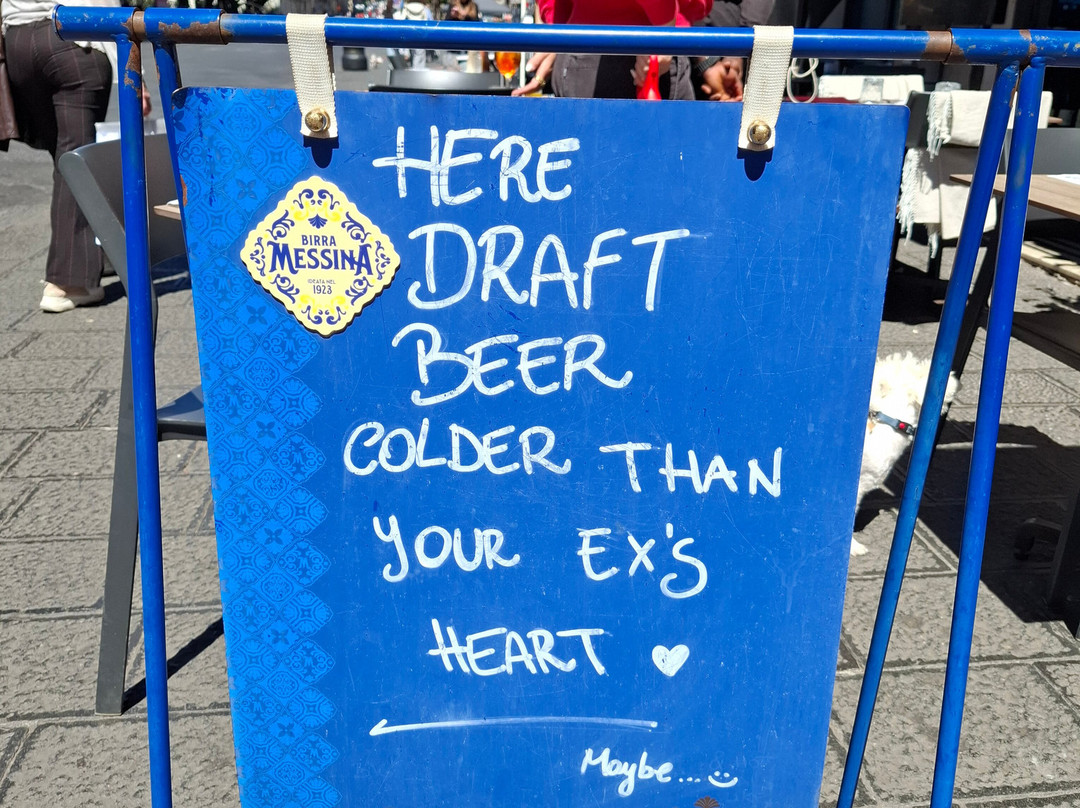 BIRRA
MESSINA
IDEATA NEL
1923
HERE
DRAFT
BEER
COLDER THAN
YOUR EX'S
HEART ♥
←
Maybe... :)